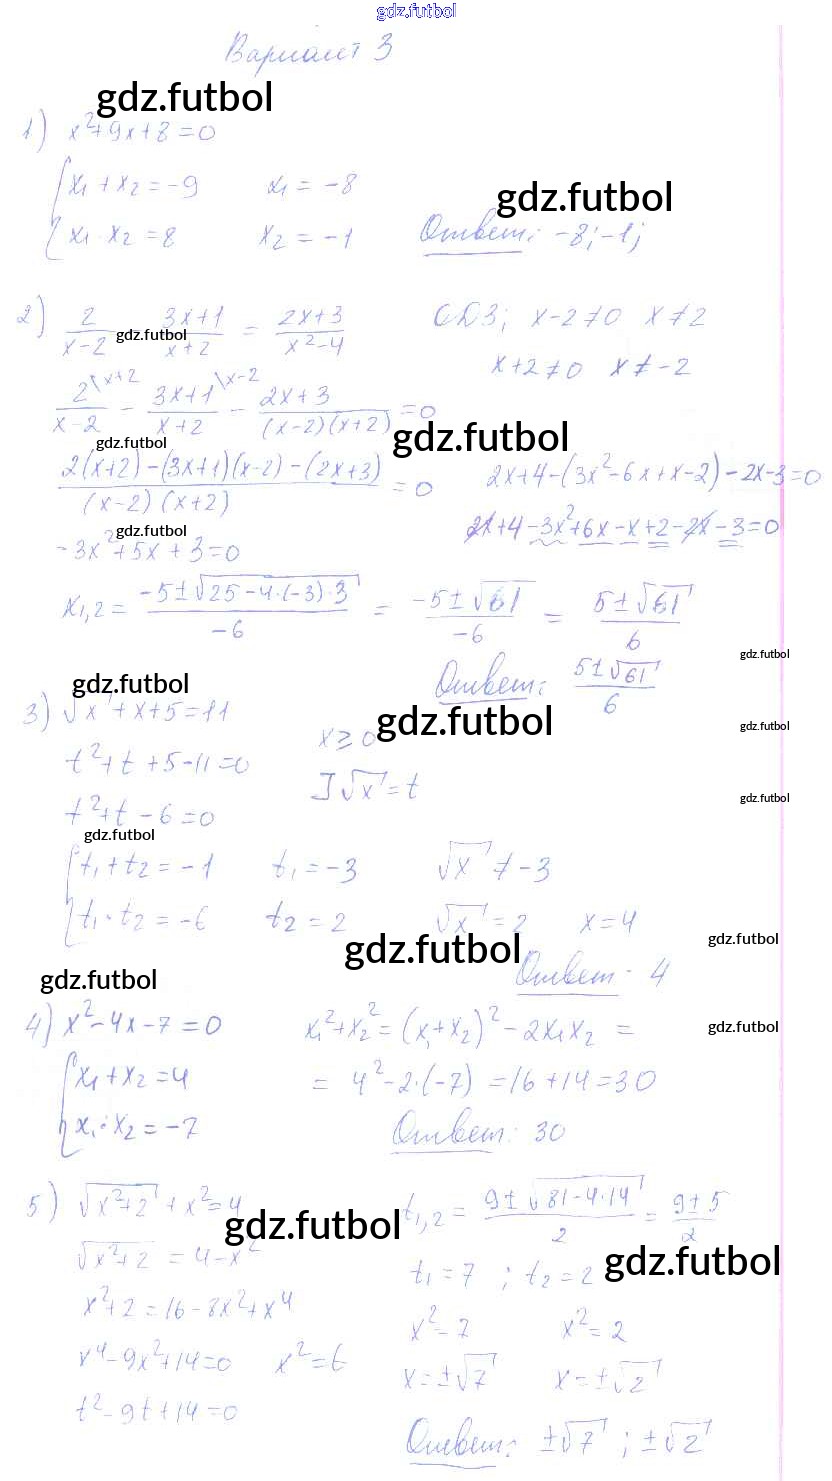 gdz.futbol
Вариант 3
gdz.futbol
1) x²+9x+8=0
x₁+x₂=-9 x₁=-8
gdz.futbol
x₁·x₂=8 x₂=-1 Ответ: -8;-1;
2) 2/(x-2) - (3x+1)/(x+2) = (2x+3)/(x²-4) ОДЗ; x-2≠0 x≠2
gdz.futbol
x+2≠0 x≠-2
2\x+2/(x-2) - (3x+1)\x-2/(x+2) - (2x+3)/((x-2)(x+2)) =0
gdz.futbol
gdz.futbol
(2(x+2)-(3x+1)(x-2)-(2x+3))/((x-2)(x+2)) =0 2x+4-(3x²-6x+x-2)-2x-3=0
gdz.futbol
2x+4-3x²+6x-x+2-2x-3=0
-3x²+5x+3=0
x₁,₂ = (-5±√25-4·(-3)·3)/(-6) = (-5±√61)/(-6) = (5±√61)/6
gdz.futbol
Ответ: (5±√61)/6
gdz.futbol
3) √x+x+5=11
gdz.futbol
gdz.futbol
t²+t+5-11=0 x≥0
] √x=t
gdz.futbol
t²+t-6=0
gdz.futbol
t₁+t₂=-1 t₁=-3 √x≠-3
t₁·t₂=-6 t₂=2 √x=2 x=4
gdz.futbol
gdz.futbol
Ответ: 4
gdz.futbol
4) x²-4x-7=0 x₁²+x₂²=(x₁+x₂)²-2x₁x₂=
gdz.futbol
x₁+x₂=4 =4²-2·(-7)=16+14=30
x₁·x₂=-7 Ответ: 30
5) √x²+2+x²=4 t₁,₂ = (9±√81-4·14)/2 = (9±5)/2
gdz.futbol
√x²+2=4-x² t₁=7; t₂=2
gdz.futbol
x²+2=16-8x²+x⁴ x²=7 x²=2
x⁴-9x²+14=0 x²=t x=±√7 x=±√2
t²-9t+14=0
Ответ: ±√7; ±√2